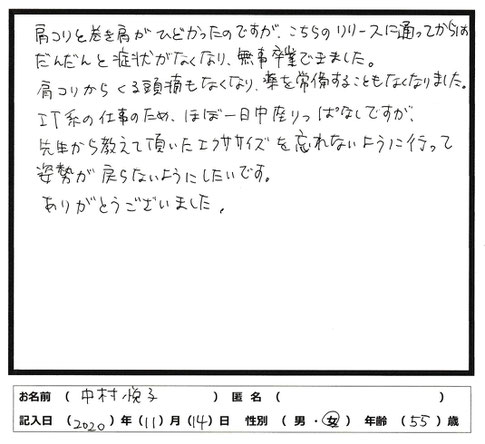 肩コリと巻き肩がひどかったのですが、こちらのリリースに通ってからは
だんだんと症状がなくなり、無事卒業できました。
肩コリからくる頭痛もなくなり、薬を常備することもなくなりました。
IT系の仕事のため、ほぼ一日中座りっぱなしですが、
先生から教えて頂いたエクササイズを忘れないように行って
姿勢が戻らないようにしたいです。
ありがとうございました。
お名前 （ 中村 悦子 ） 匿名 （ ）
記入日 （2020）年（11）月（14）日 性別 （ 男 ・ 女 ） 年齢 （55）歳